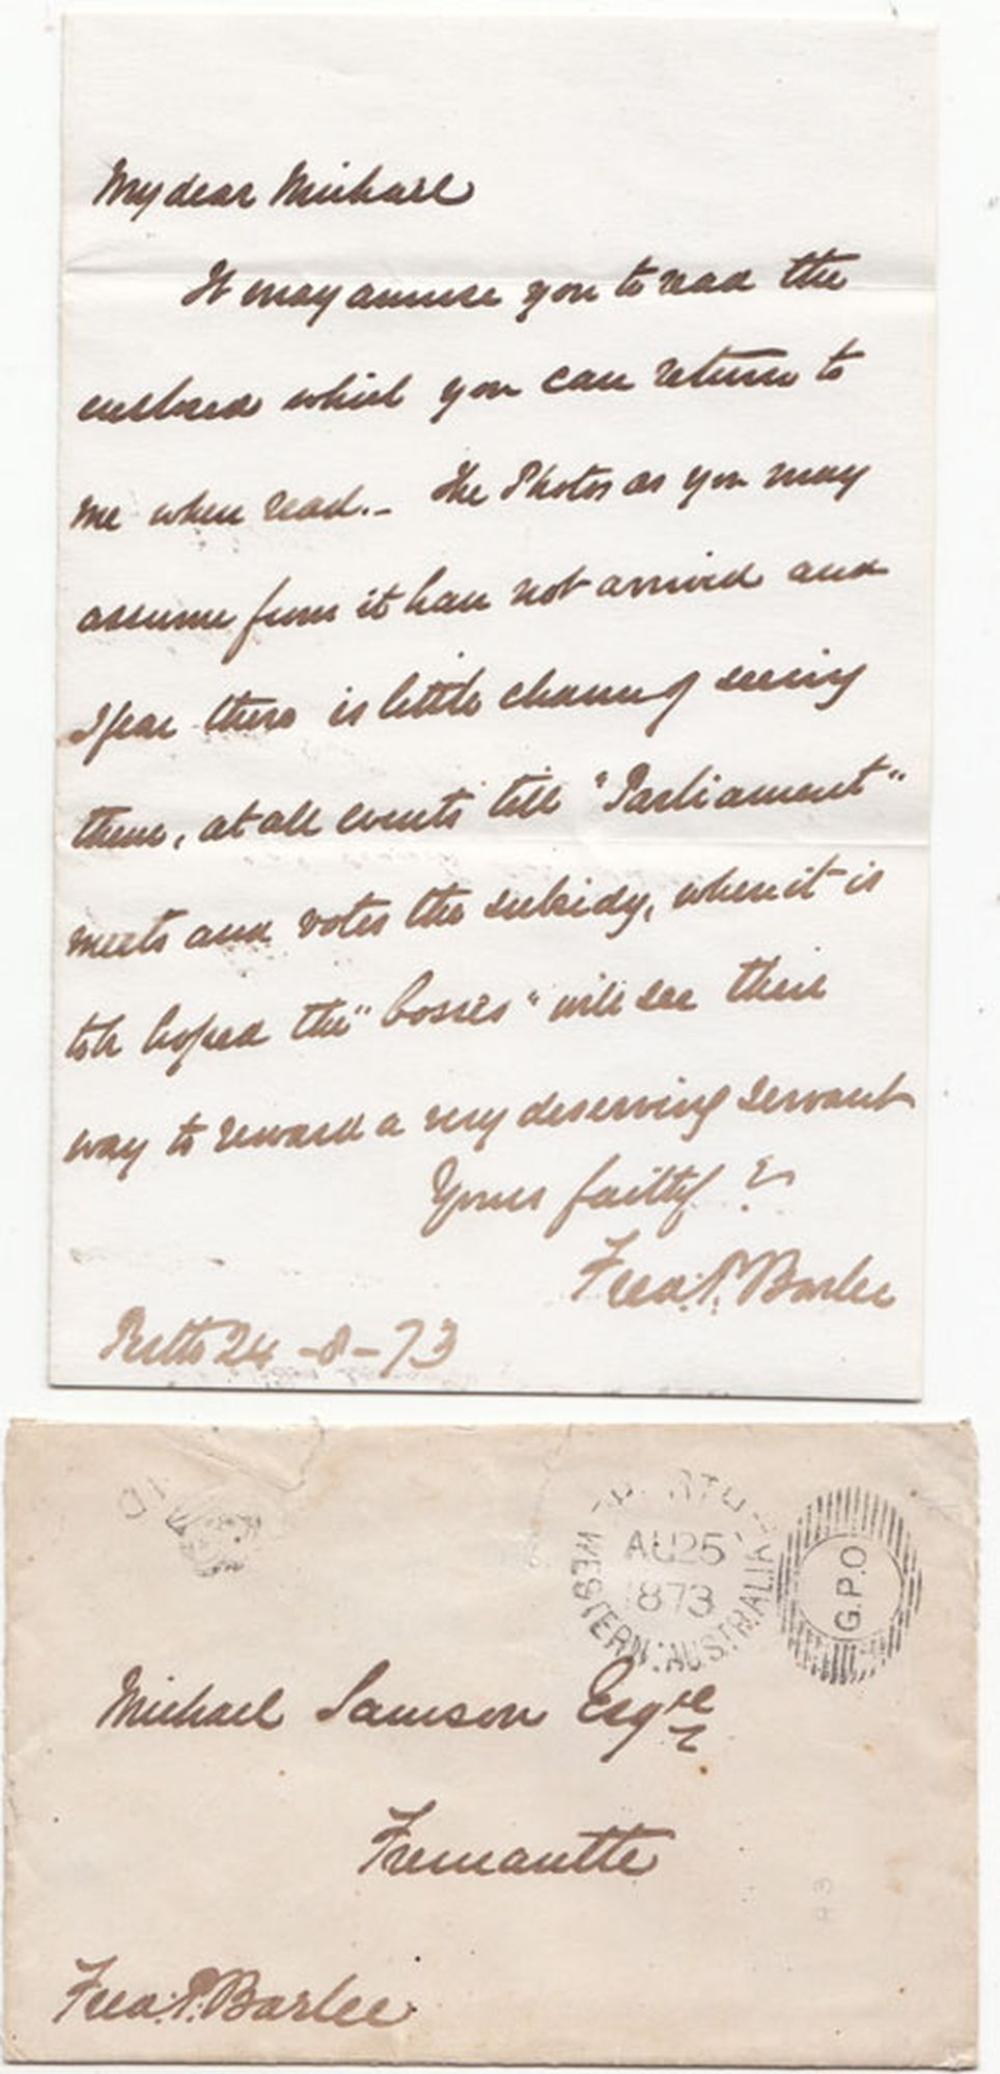 My dear Michael
It may amuse you to read the
enclosed which you can return to
me when read._ The Photos as you may
assume from it have not arrived and
I fear there is little chance of seeing
them, at all events till "Parliament"
meets and votes the subsidy, when it is
to be hoped the "bosses" will see their
way to reward a very deserving servant
Yours faithy
Fred. P. Barlee
Perth 24-8-73
PAID
WESTERN AUSTRALIA
AU 25
1873
G.P.O
Michael Samson Esqre
Fremantle
Fred. P. Barlee